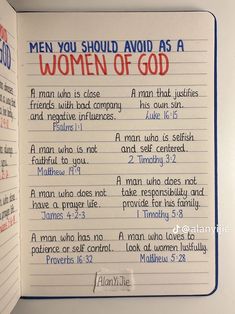 MEN YOU SHOULD AVOID AS A
WOMEN OF GOD
A man who is close
friends with bad company
and negative influences.
Psalms 1:1
A man that justifies
his own sin.
Luke 16:15
A man who is not
faithful to you.
Matthew 19:9
A man who is selfish
and self centered.
2 Timothy 3:2
A man who does not
have a prayer life.
James 4:2-3
A man who does not
take responsibility and
provide for his family.
1 Timothy 5:8
A man who has no
patience or self control.
Proverbs 16:32
A man who loves to
look at women lustfully.
Matthew 5:28
AlanYiJie
@alanyijie